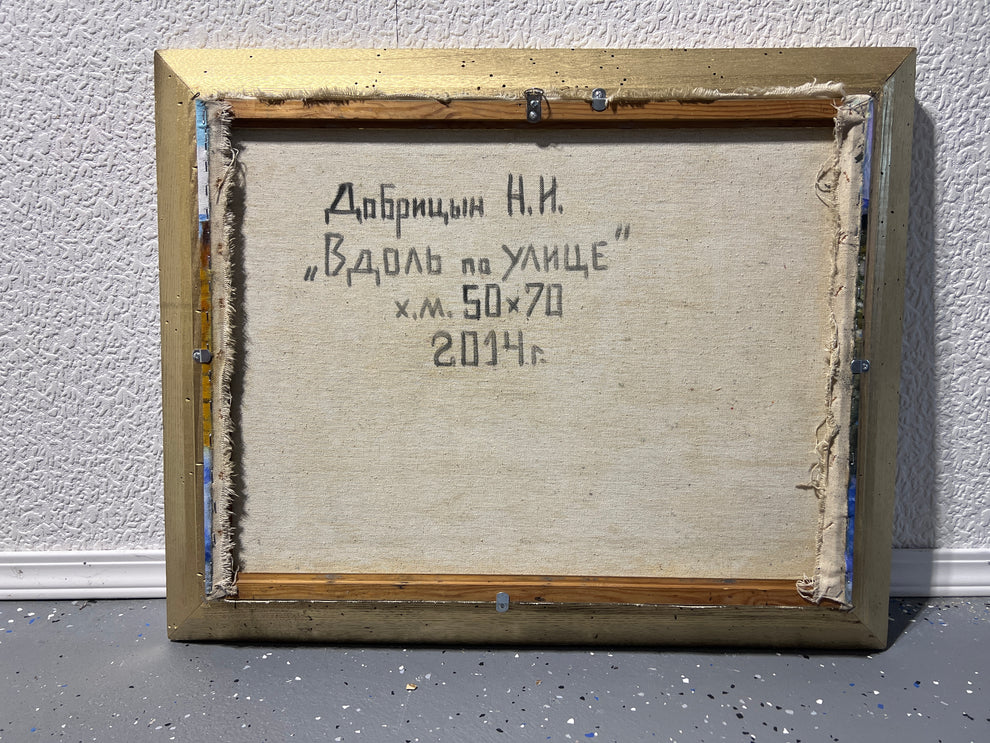 Добрицын Н.И.
„Вдоль по улице"
х.м. 50×70
2014г.